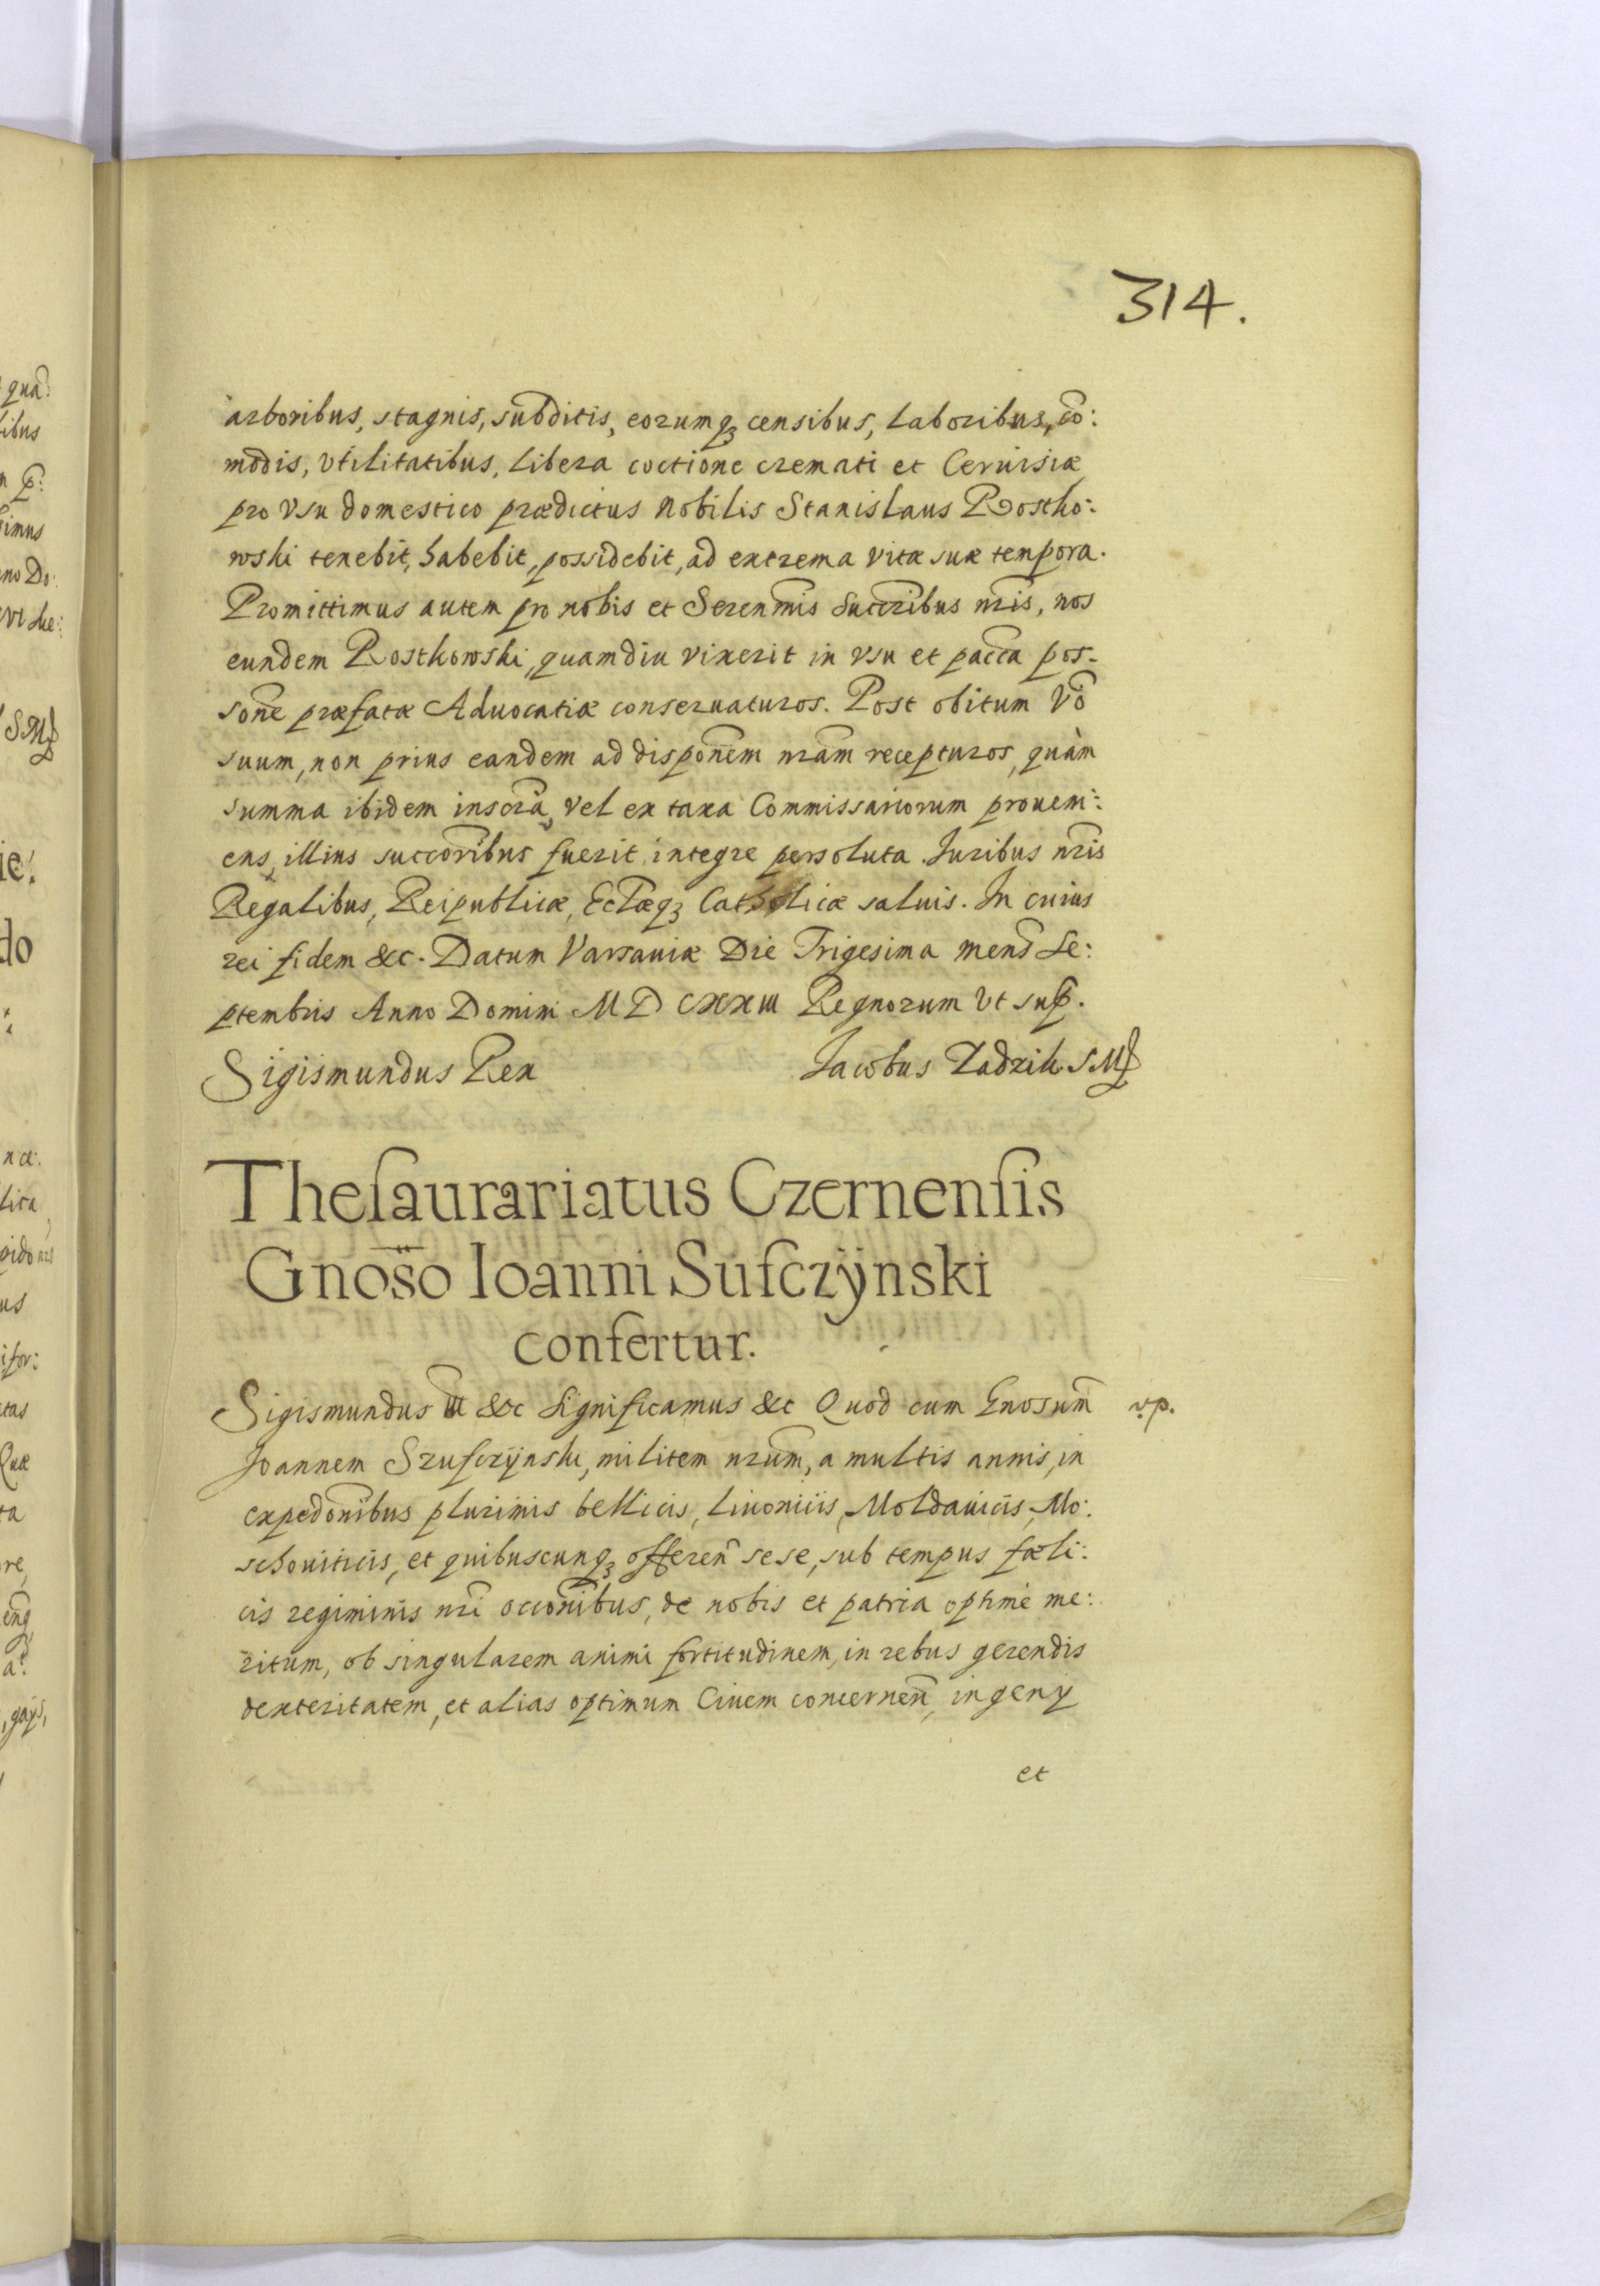 314.
arboribus, stagnis, subditis, eorumq₃ censibus, laboribus, co͞:
modis, vtilitatibus, libera coctione cremati et Ceruisiæ
pro vsu domestico prædictus Nobilis Stanislaus Rostko:
wski tenebit, habebit, possidebit, ad extrema vitæ suæ tempora.
Promittimus autem pro nobis et Seren͞mis Succ͞ribus n͞ris, nos
eundem Rostkowski, quamdiu vixerit in vsu et pac͞ca pos-
so͞ne præfatæ Aduocatiæ conseruaturos. Post obitum V͞o
suum, non prius eandem ad dispo͞nem n͞ram recepturos, quàm
summa ibidem inscr͞a, vel ex taxa Commissariorum proueni:
ens, illius succo͞ribus fuerit integre persoluta. Iuribus n͞ris
Regalibus, Reipublicæ, Ecl͞æq₃ Catholicæ saluis. In cuius
rei fidem &c. Datum Varsauiæ Die Trigesima men͞s Se:
ptembris Anno Domini M D CXXIII Regnorum Vt sup͞.
Sigismundus Rex Iacobus Zadzik SMp
Theſaurariatus Czernenſis
Gno͞so Ioanni Sufczÿnski
confertur.
Sigismundus III &c Significamus &c Quod cum Gnosu͞m vp.
Joannem Szufczÿnski, militem nru͞m, a multis annis, in
expedo͞nibus plurimis bellicis, Liuonicis, Moldauicis, Mo:
schouiticis, et quibuscunq₃ offeren͞ sese, sub tempus fæli:
cis regiminis n͞ri occo͞nibus, de nobis et patria optimè me:
ritum, ob singularem animi fortitudinem, in rebus gerendis
dexteritatem, et alias optimum Ciuem concernen͞, ingenÿ
et